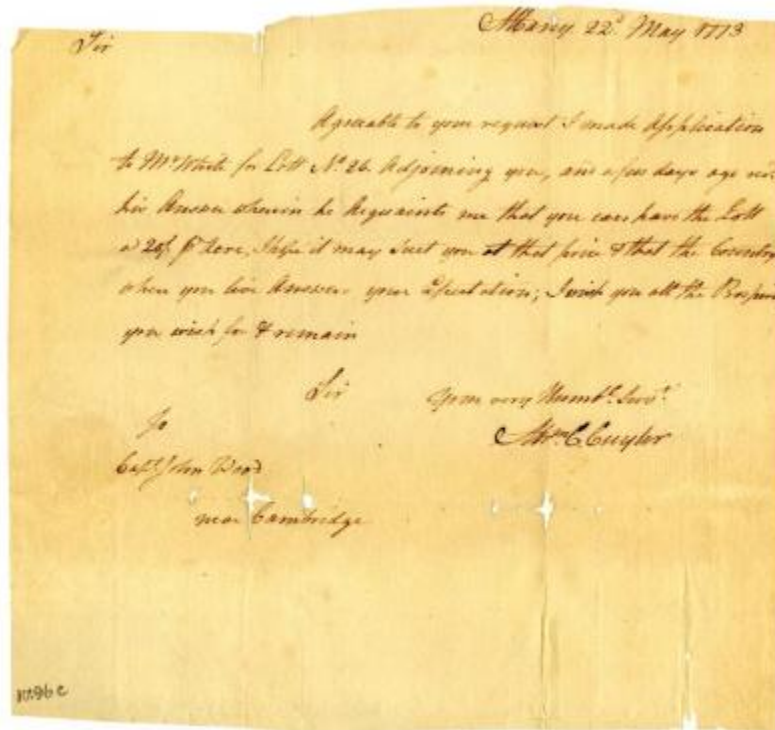 Albany 22d. May 1773
Sir
Agreable to your request I made Application
to Mr White for Lott No. 26. Adjoining you, and a few days ago
his Answer wherein he Acquaints me that you can have the Lott
a 20/ pr Acre, I hope it may Suit you at that price & that the Country
where you live Answers your ; I wish you all the
you wish for & remain
Sir
Your very Humbe. Servt.
Abrm. C. Cuyler
To
Capt. John Wood
near Cambridge